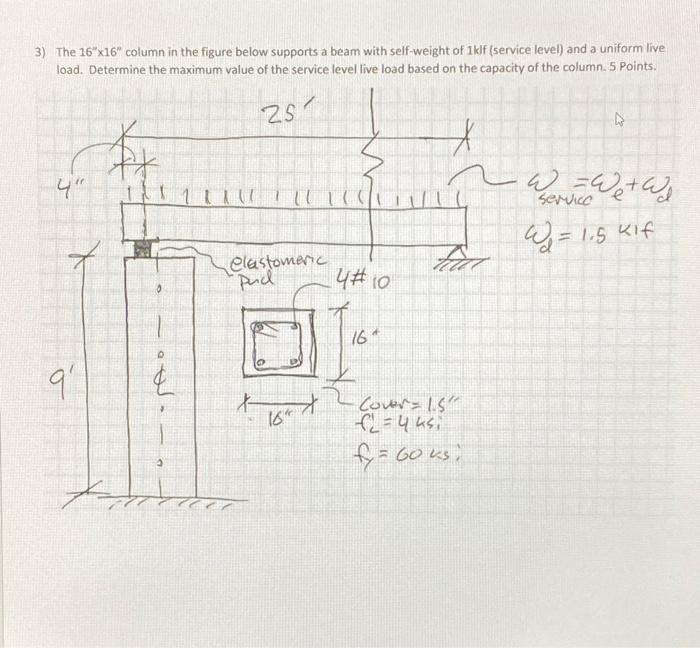 3) The 16"x16" column in the figure below supports a beam with self-weight of 1klf (service level) and a uniform live
load. Determine the maximum value of the service level live load based on the capacity of the column. 5 Points.
25'
4"
ω = ωe + ωd
service
ωd = 1.5 klf
elastomeric
pad
4#10
16"
9'
℄
16"
Cover = 1.5"
f'c = 4 ksi
fy = 60 ksi